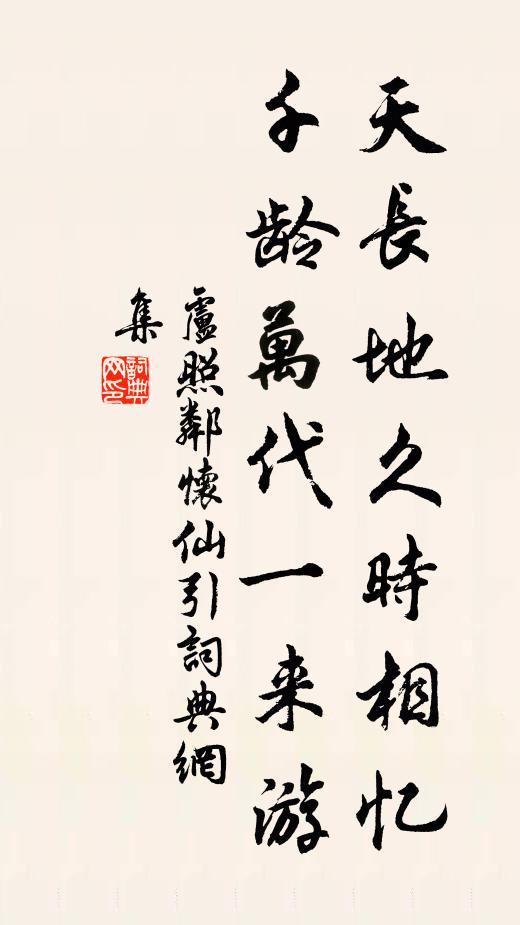 天長地久時相忆
千龄萬代一来游
盧照鄰懷仙引詞典網
集
詞典网印